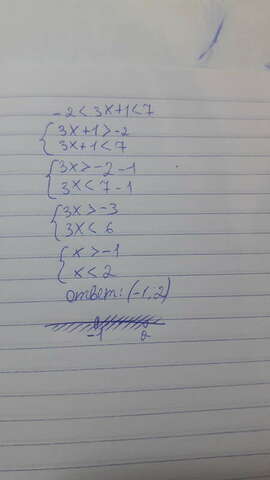 -2 < 3x+1 < 7
{ 3x+1 > -2
3x+1 < 7
{ 3x > -2 -1
3x < 7 -1
{ 3x > -3
3x < 6
{ x > -1
x < 2
ответ: (-1; 2)
-1 2